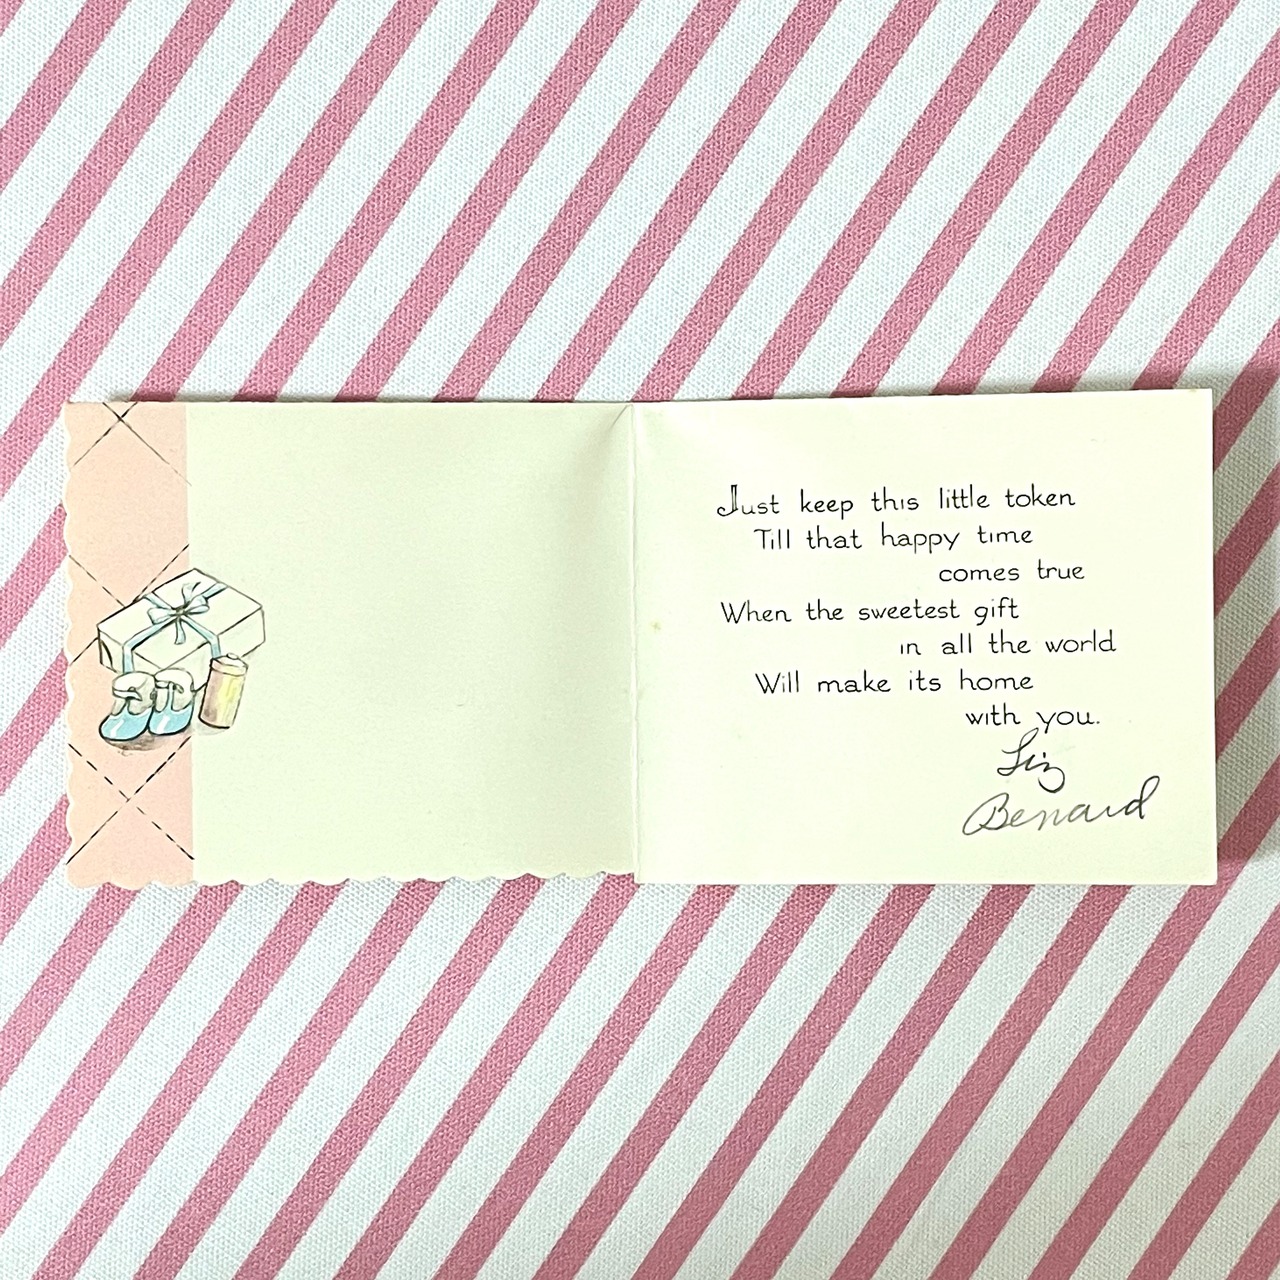 Just keep this little token
Till that happy time
comes true
When the sweetest gift
in all the world
Will make its home
with you.
Liz
Benard